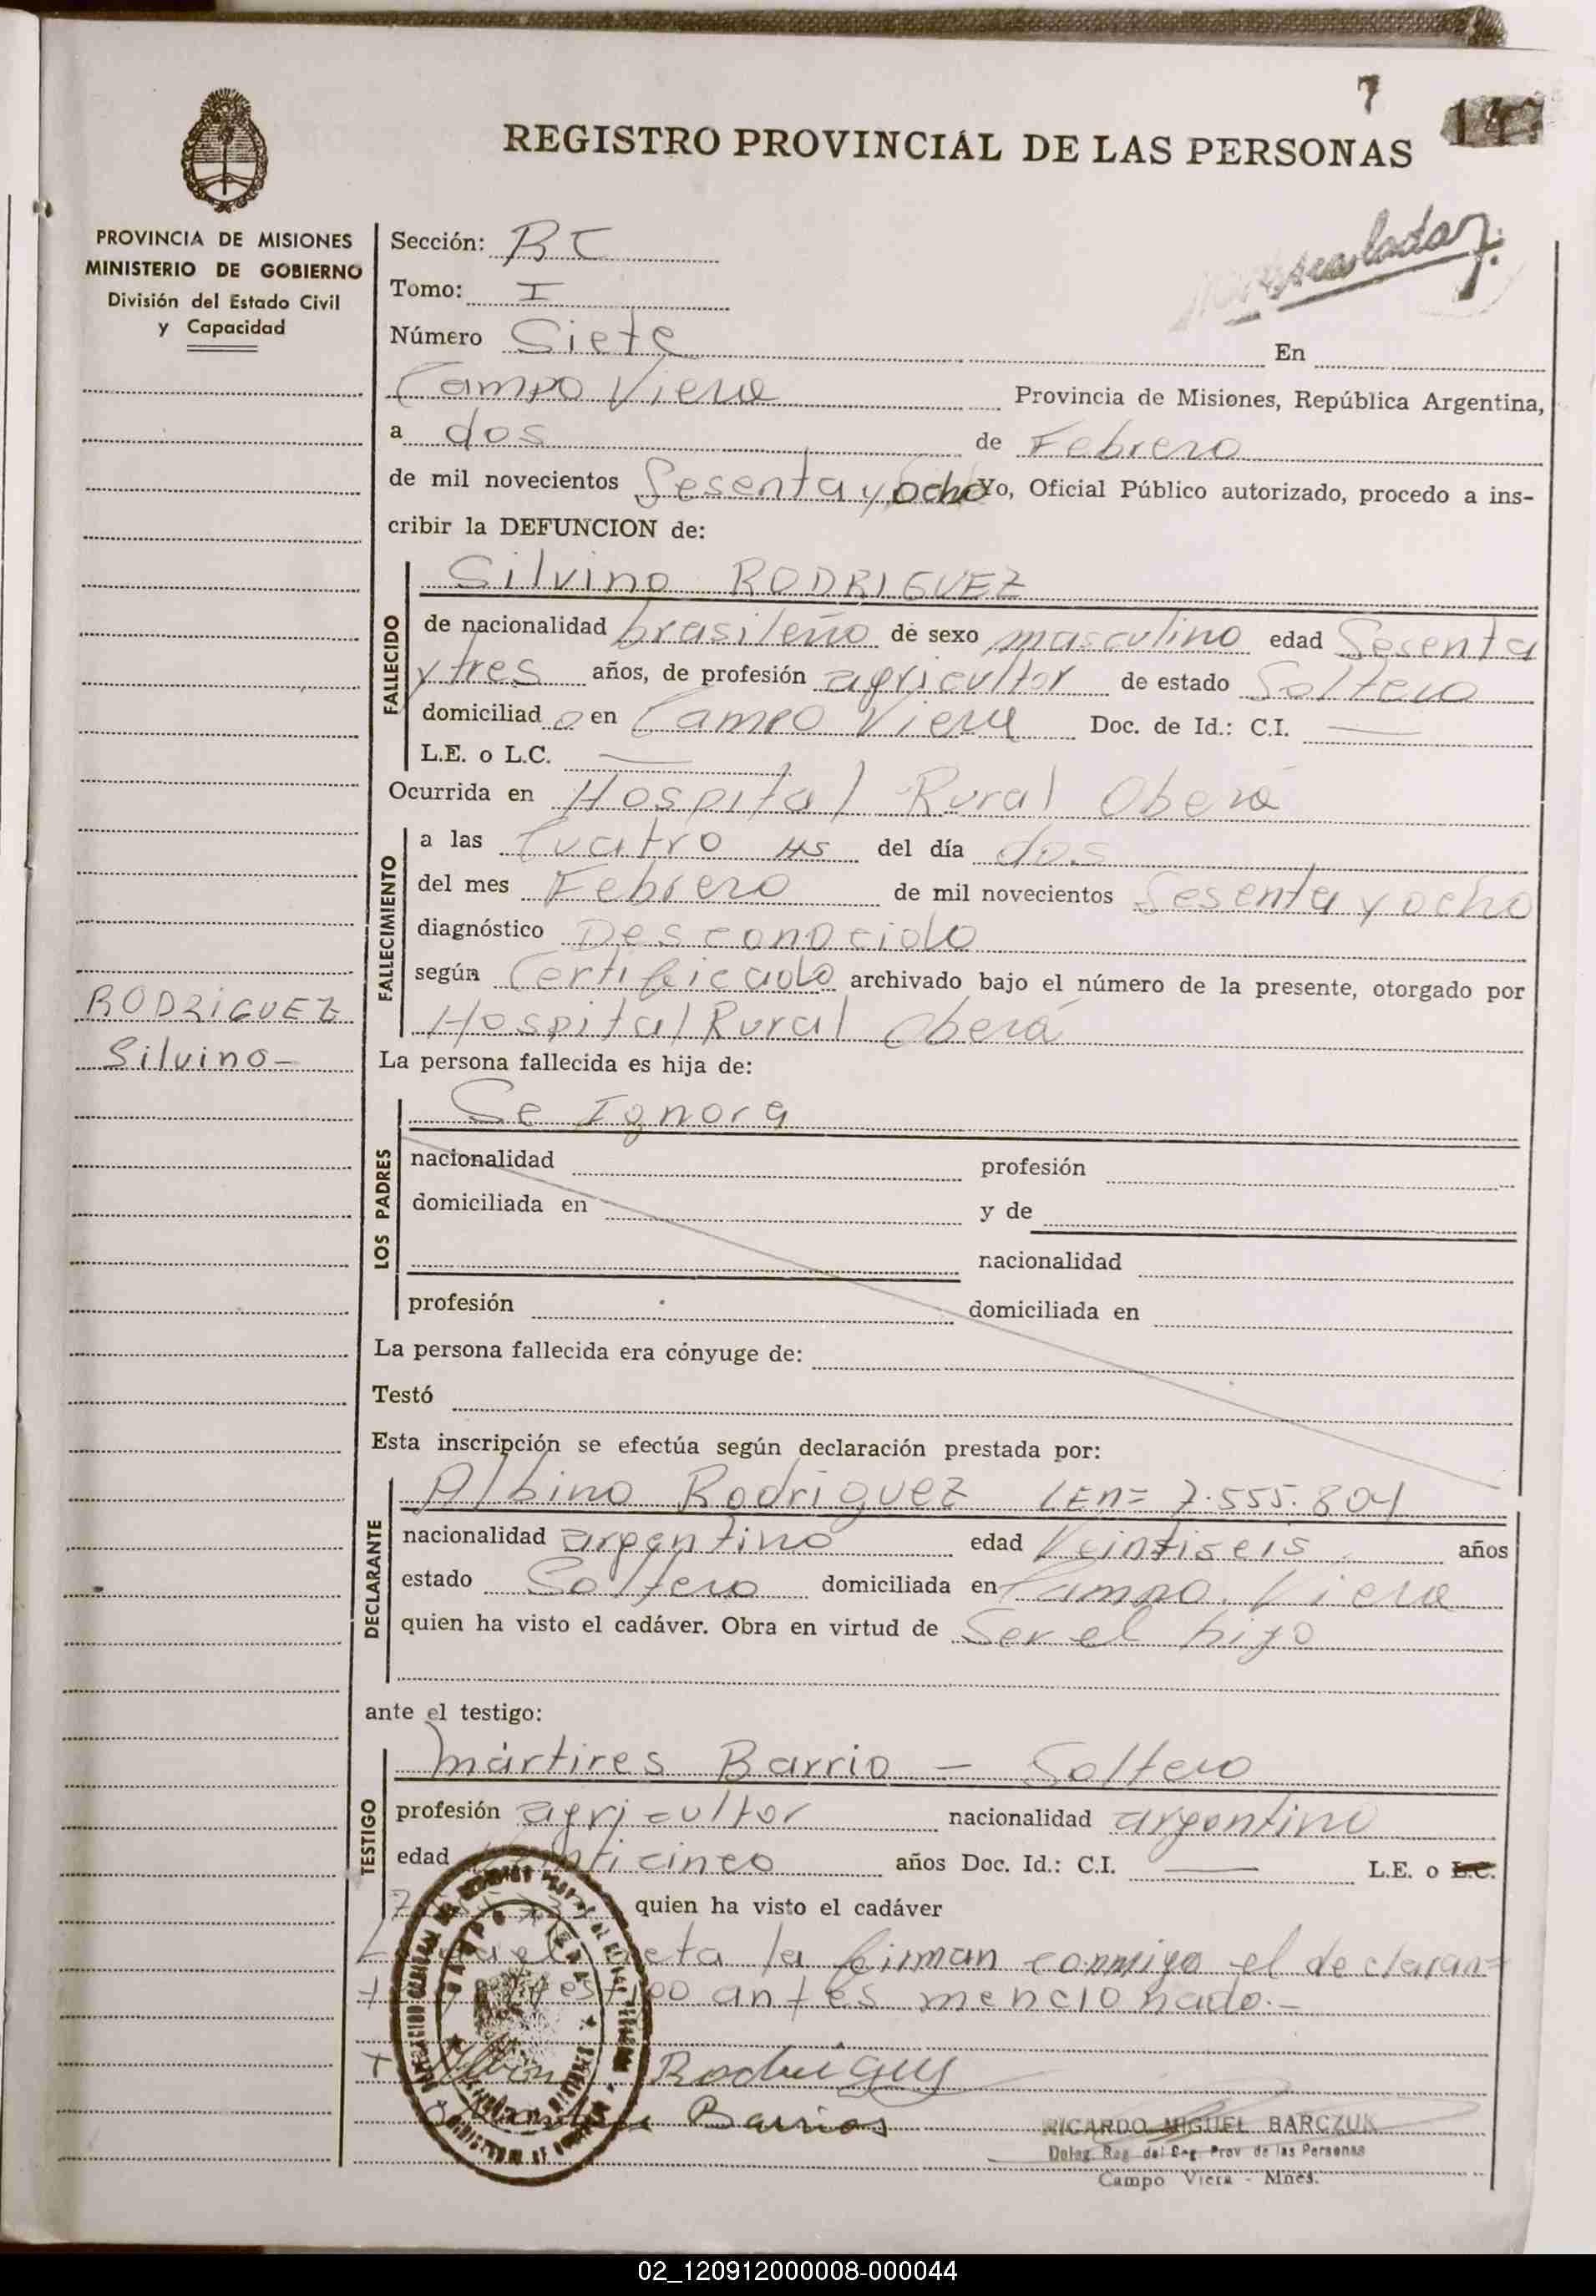 7
147
REGISTRO PROVINCIAL DE LAS PERSONAS
PROVINCIA DE MISIONES
MINISTERIO DE GOBIERNO
División del Estado Civil
y Capacidad
Sección: BC
Tomo: I
Número Siete En
Campo Viera Provincia de Misiones, República Argentina,
a dos de Febrero
de mil novecientos Sesenta y Ocho Yo, Oficial Público autorizado, procedo a ins-
cribir la DEFUNCION de:
FALLECIDO
Silvino RODRIGUEZ
de nacionalidad brasileño de sexo masculino edad Sesenta
y tres años, de profesión agricultor de estado Soltero
domiciliad o en Campo Viera Doc. de Id.: C.I. —
L.E. o L.C. —
Ocurrida en Hospital Rural Oberá
FALLECIMIENTO
a las Cuatro HS del día dos
del mes Febrero de mil novecientos Sesenta y ocho
diagnóstico Desconocido
según Certificado archivado bajo el número de la presente, otorgado por
Hospital Rural Oberá
RODRIGUEZ
Silvino-
La persona fallecida es hija de:
LOS PADRES
Se Ignora
nacionalidad profesión
domiciliada en y de
nacionalidad
profesión domiciliada en
La persona fallecida era cónyuge de:
Testó
Esta inscripción se efectúa según declaración prestada por:
DECLARANTE
Albino Rodriguez LEn= 7.555.804
nacionalidad argentino edad Veintiseis años
estado Soltero domiciliada en Campo Viera
quien ha visto el cadáver. Obra en virtud de Ser el hijo
ante el testigo:
TESTIGO
Mártires Barrio - Soltero
profesión agricultor nacionalidad argentino
edad Veinticinco años Doc. Id.: C.I. — L.E. o L.C.
quien ha visto el cadáver
acta la firman conmigo el declaran=
testigo antes mencionado.-
Rodriguez
Barrios
RICARDO MIGUEL BARCZUK
Deleg. Reg. del Reg. Prov de las Personas
Campo Viera - Mnes.
02_120912000008-000044